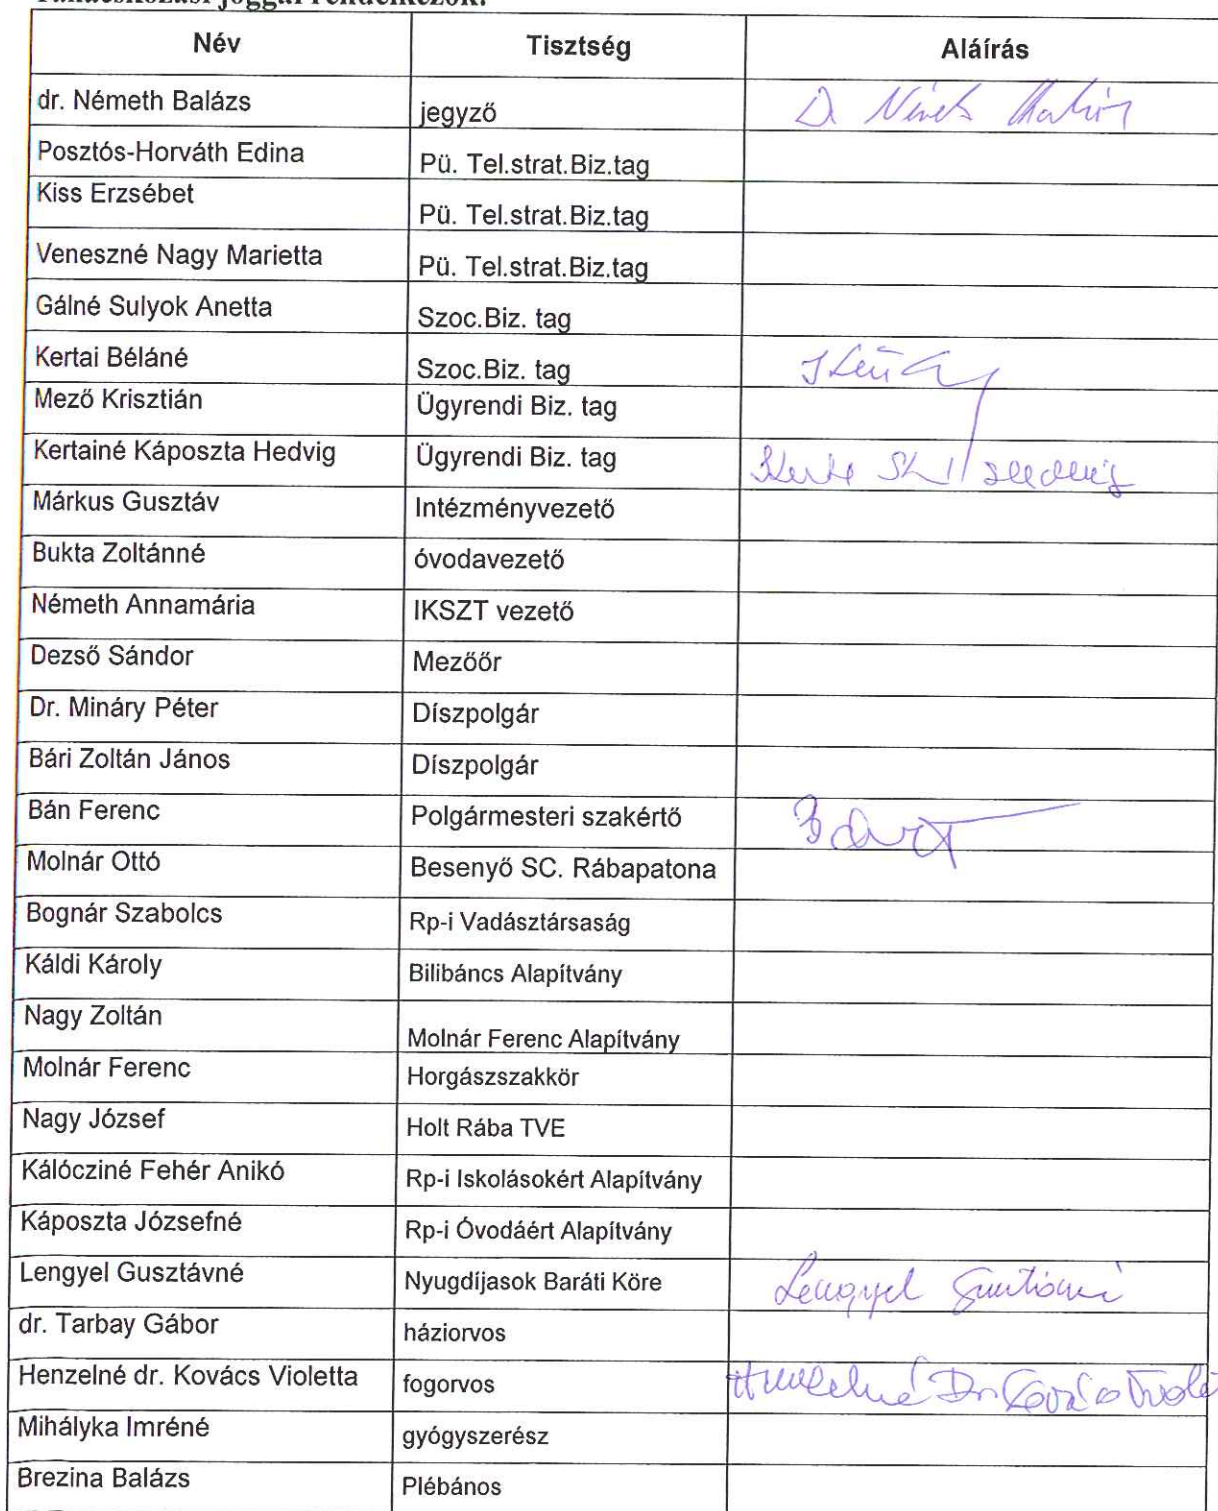 Tanácskozási joggal rendelkezők:
Név Tisztség Aláírás
dr. Németh Balázs jegyző Dr Németh
Posztós-Horváth Edina Pü. Tel.strat.Biz.tag
Kiss Erzsébet Pü. Tel.strat.Biz.tag
Veneszné Nagy Marietta Pü. Tel.strat.Biz.tag
Gálné Sulyok Anetta Szoc.Biz. tag
Kertai Béláné Szoc.Biz. tag
Mező Krisztián Ügyrendi Biz. tag
Kertainé Káposzta Hedvig Ügyrendi Biz. tag
Márkus Gusztáv Intézményvezető
Bukta Zoltánné óvodavezető
Németh Annamária IKSZT vezető
Dezső Sándor Mezőőr
Dr. Mináry Péter Díszpolgár
Bári Zoltán János Díszpolgár
Bán Ferenc Polgármesteri szakértő
Molnár Ottó Besenyő SC. Rábapatona
Bognár Szabolcs Rp-i Vadásztársaság
Káldi Károly Bilibáncs Alapítvány
Nagy Zoltán Molnár Ferenc Alapítvány
Molnár Ferenc Horgászszakkör
Nagy József Holt Rába TVE
Kálócziné Fehér Anikó Rp-i Iskolásokért Alapítvány
Káposzta Józsefné Rp-i Óvodáért Alapítvány
Lengyel Gusztávné Nyugdíjasok Baráti Köre Lengyel Gusztávné
dr. Tarbay Gábor háziorvos
Henzelné dr. Kovács Violetta fogorvos Henzelné Dr Kovács Viole
Mihályka Imréné gyógyszerész
Brezina Balázs Plébános